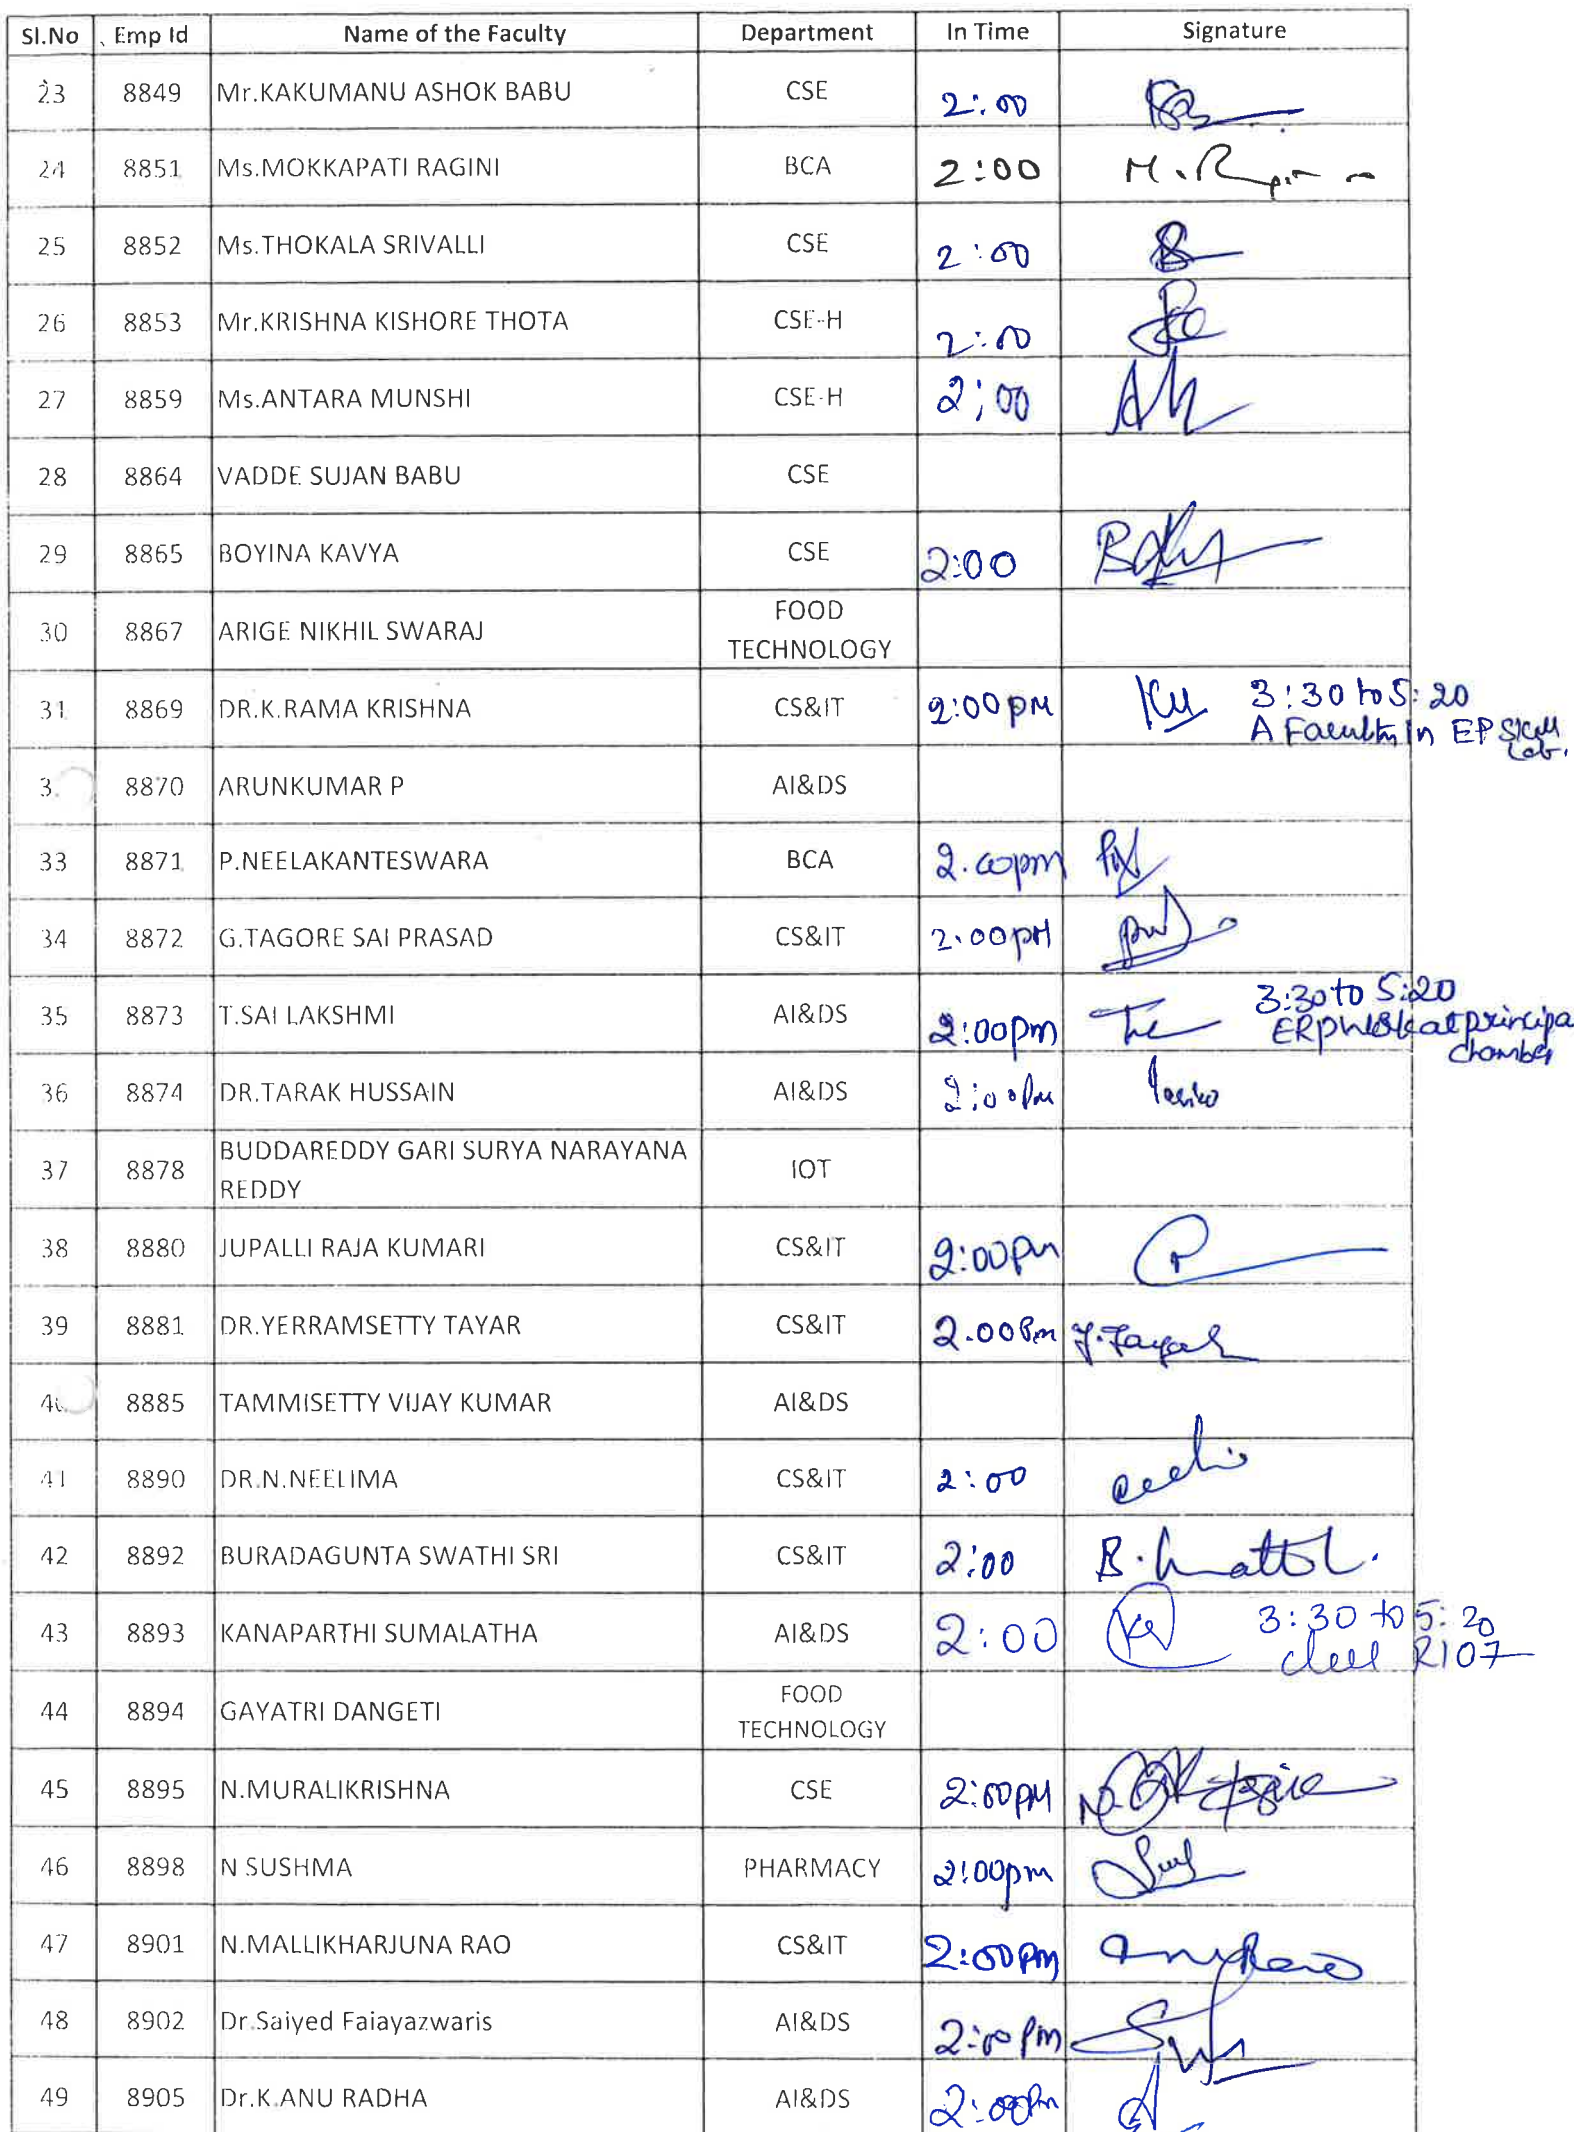 Sl.No Emp Id Name of the Faculty Department In Time Signature
23 8849 Mr.KAKUMANU ASHOK BABU CSE 2:00
24 8851 Ms.MOKKAPATI RAGINI BCA 2:00 M.R
25 8852 Ms.THOKALA SRIVALLI CSE 2:00
26 8853 Mr.KRISHNA KISHORE THOTA CSE-H 2:00
27 8859 Ms.ANTARA MUNSHI CSE-H 2:00
28 8864 VADDE SUJAN BABU CSE
29 8865 BOYINA KAVYA CSE 2:00
30 8867 ARIGE NIKHIL SWARAJ FOOD
TECHNOLOGY
31 8869 DR.K.RAMA KRISHNA CS&IT 2:00 PM 3:30 to 5:20
A Faculty in EP Skill
Lab.
3 8870 ARUNKUMAR P AI&DS
33 8871 P.NEELAKANTESWARA BCA 2.00pm
34 8872 G.TAGORE SAI PRASAD CS&IT 2.00PM
35 8873 T.SAI LAKSHMI AI&DS 2:00pm 3:30 to 5:20
at principa
chamber
36 8874 DR.TARAK HUSSAIN AI&DS 2:00 Pm
37 8878 BUDDAREDDY GARI SURYA NARAYANA
REDDY IOT
38 8880 JUPALLI RAJA KUMARI CS&IT 2:00pm
39 8881 DR.YERRAMSETTY TAYAR CS&IT 2.00 Pm Y.Tayar
4 8885 TAMMISETTY VIJAY KUMAR AI&DS
41 8890 DR.N.NEELIMA CS&IT 2:00
42 8892 BURADAGUNTA SWATHI SRI CS&IT 2:00
43 8893 KANAPARTHI SUMALATHA AI&DS 2:00 3:30 to 5:20
R107
44 8894 GAYATRI DANGETI FOOD
TECHNOLOGY
45 8895 N.MURALIKRISHNA CSE 2:00PM
46 8898 N SUSHMA PHARMACY 2:00pm
47 8901 N.MALLIKHARJUNA RAO CS&IT 2:00PM
48 8902 Dr.Saiyed Faiayazwaris AI&DS 2:00 Pm
49 8905 Dr.K.ANU RADHA AI&DS 2:00Pm